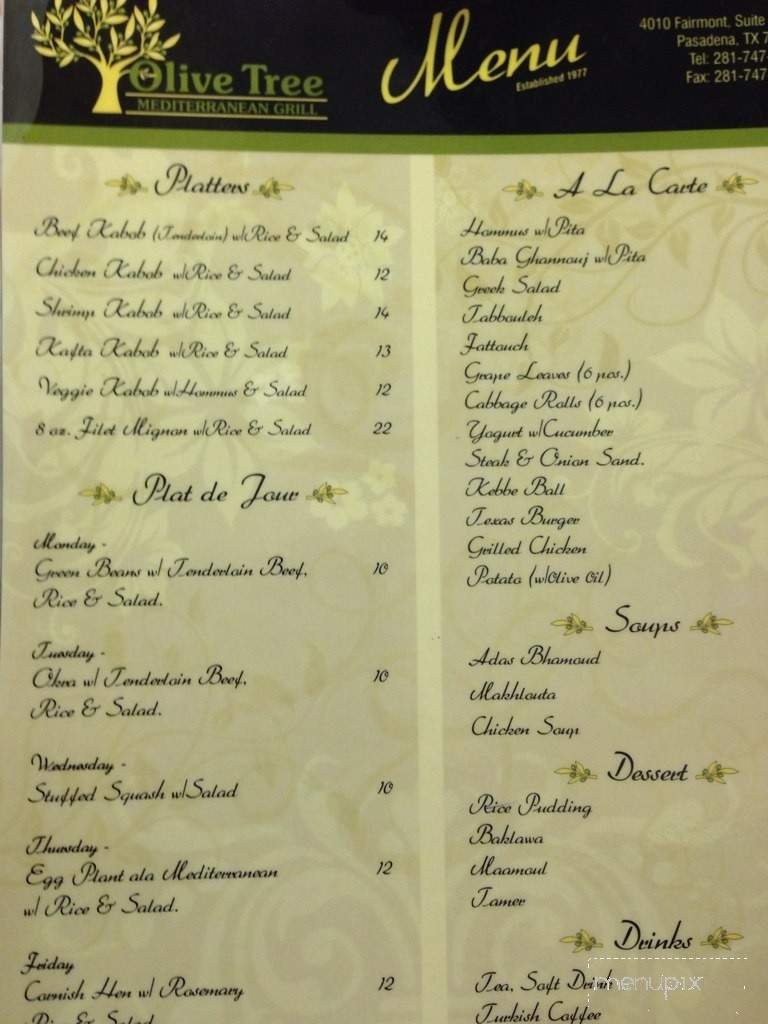 Olive Tree
MEDITERRANEAN GRILL
Menu
Established 1977
4010 Fairmont, Suite
Pasadena, TX 7
Tel: 281-747-
Fax: 281-747
Platters
Beef Kabob (Tenderloin) w/Rice & Salad 14
Chicken Kabob w/Rice & Salad 12
Shrimp Kabob w/Rice & Salad 14
Kafta Kabob w/Rice & Salad 13
Veggie Kabob w/Hommus & Salad 12
8 oz. Filet Mignon w/Rice & Salad 22
Plat de Jour
Monday -
Green Beans w/ Tenderloin Beef, 10
Rice & Salad.
Tuesday -
Okra w/ Tenderloin Beef, 10
Rice & Salad.
Wednesday -
Stuffed Squash w/Salad 10
Thursday -
Egg Plant ala Mediterranean 12
w/ Rice & Salad.
Friday
Cornish Hen w/ Rosemary 12
Rice & Salad
A La Carte
Hommus w/Pita
Baba Ghannouj w/Pita
Greek Salad
Tabbouleh
Fattouch
Grape Leaves (6 pcs.)
Cabbage Rolls (6 pcs.)
Yogurt w/Cucumber
Steak & Onion Sand.
Kebbe Ball
Texas Burger
Grilled Chicken
Potato (w/Olive Oil)
Soups
Adas Bhamoud
Makhlouta
Chicken Soup
Dessert
Rice Pudding
Baklawa
Maamoul
Tamer
Drinks
Tea, Soft Drink
Turkish Coffee
menupix